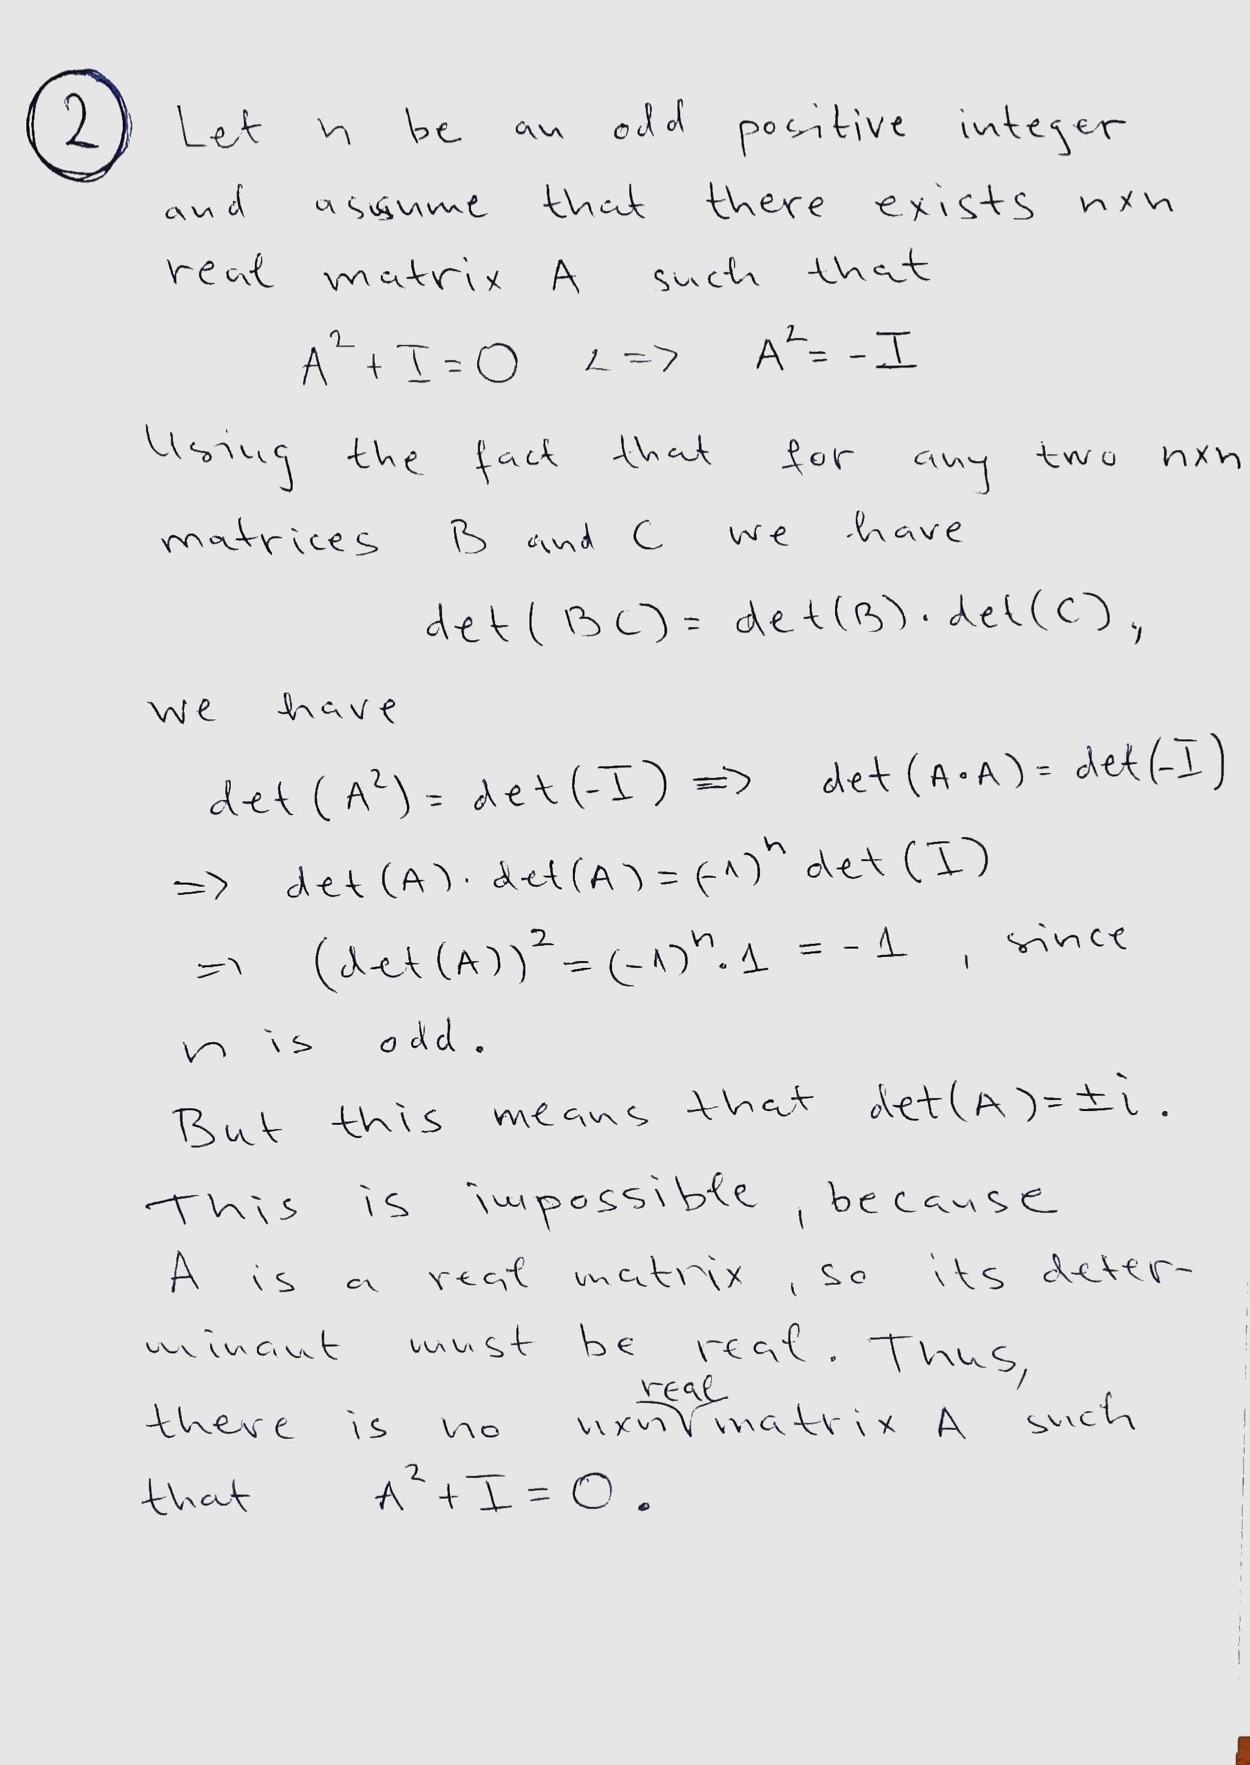 2 Let n be an odd positive integer
and assume that there exists n×n
real matrix A such that
A² + I = 0 <=> A² = - I
Using the fact that for any two n×n
matrices B and C we have
det(BC) = det(B) · det(C),
we have
det(A²) = det(-I) => det(A·A) = det(-I)
=> det(A) · det(A) = (-1)ⁿ det(I)
=> (det(A))² = (-1)ⁿ · 1 = - 1 , since
n is odd.
But this means that det(A) = ±i.
This is impossible, because
A is a real matrix, so its deter-
minant must be real. Thus,
there is no n×n real matrix A such
that A² + I = 0.